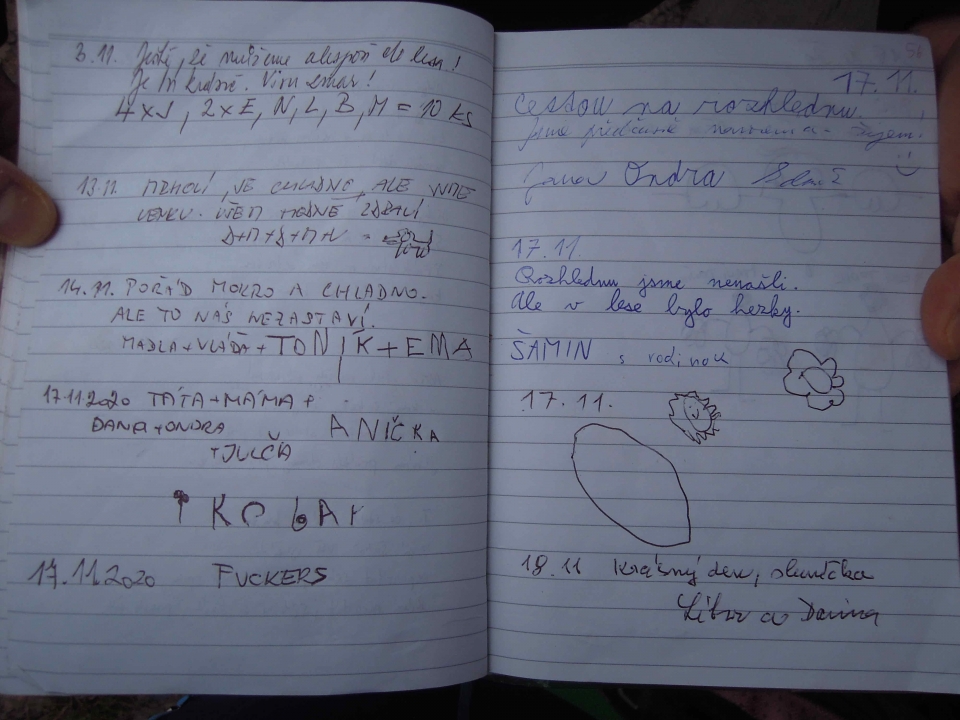 3.11. Ještě, že můžeme alespoň do lesa!
Je tu krásně. Viru zmar!
4xJ, 2xE, N, L, B, M = 10 ks
13.11. MRHOLÍ, JE CHLADNO, ALE
VENKU. VŠEM HODNĚ ZDRAVÍ
14.11. POŘÁD MOKRO A CHLADNO.
ALE TO NÁS NEZASTAVÍ.
MADLA+VLÁĎA+TONÍK+EMA
17.11.2020 TÁTA+MÁMA+
DANA+ONDRA ANIČKA
+JULČA
17.11.2020 FUCKERS
17.11.
Cestou na rozhlednu.
Jsme příjemně
Jana Ondra
17.11.
Rozhlednu jsme nenašli.
Ale v lese bylo hezky.
ŠAMIN s rodinou
17.11.
18.11 Krásný den, sluníčko
Libor a